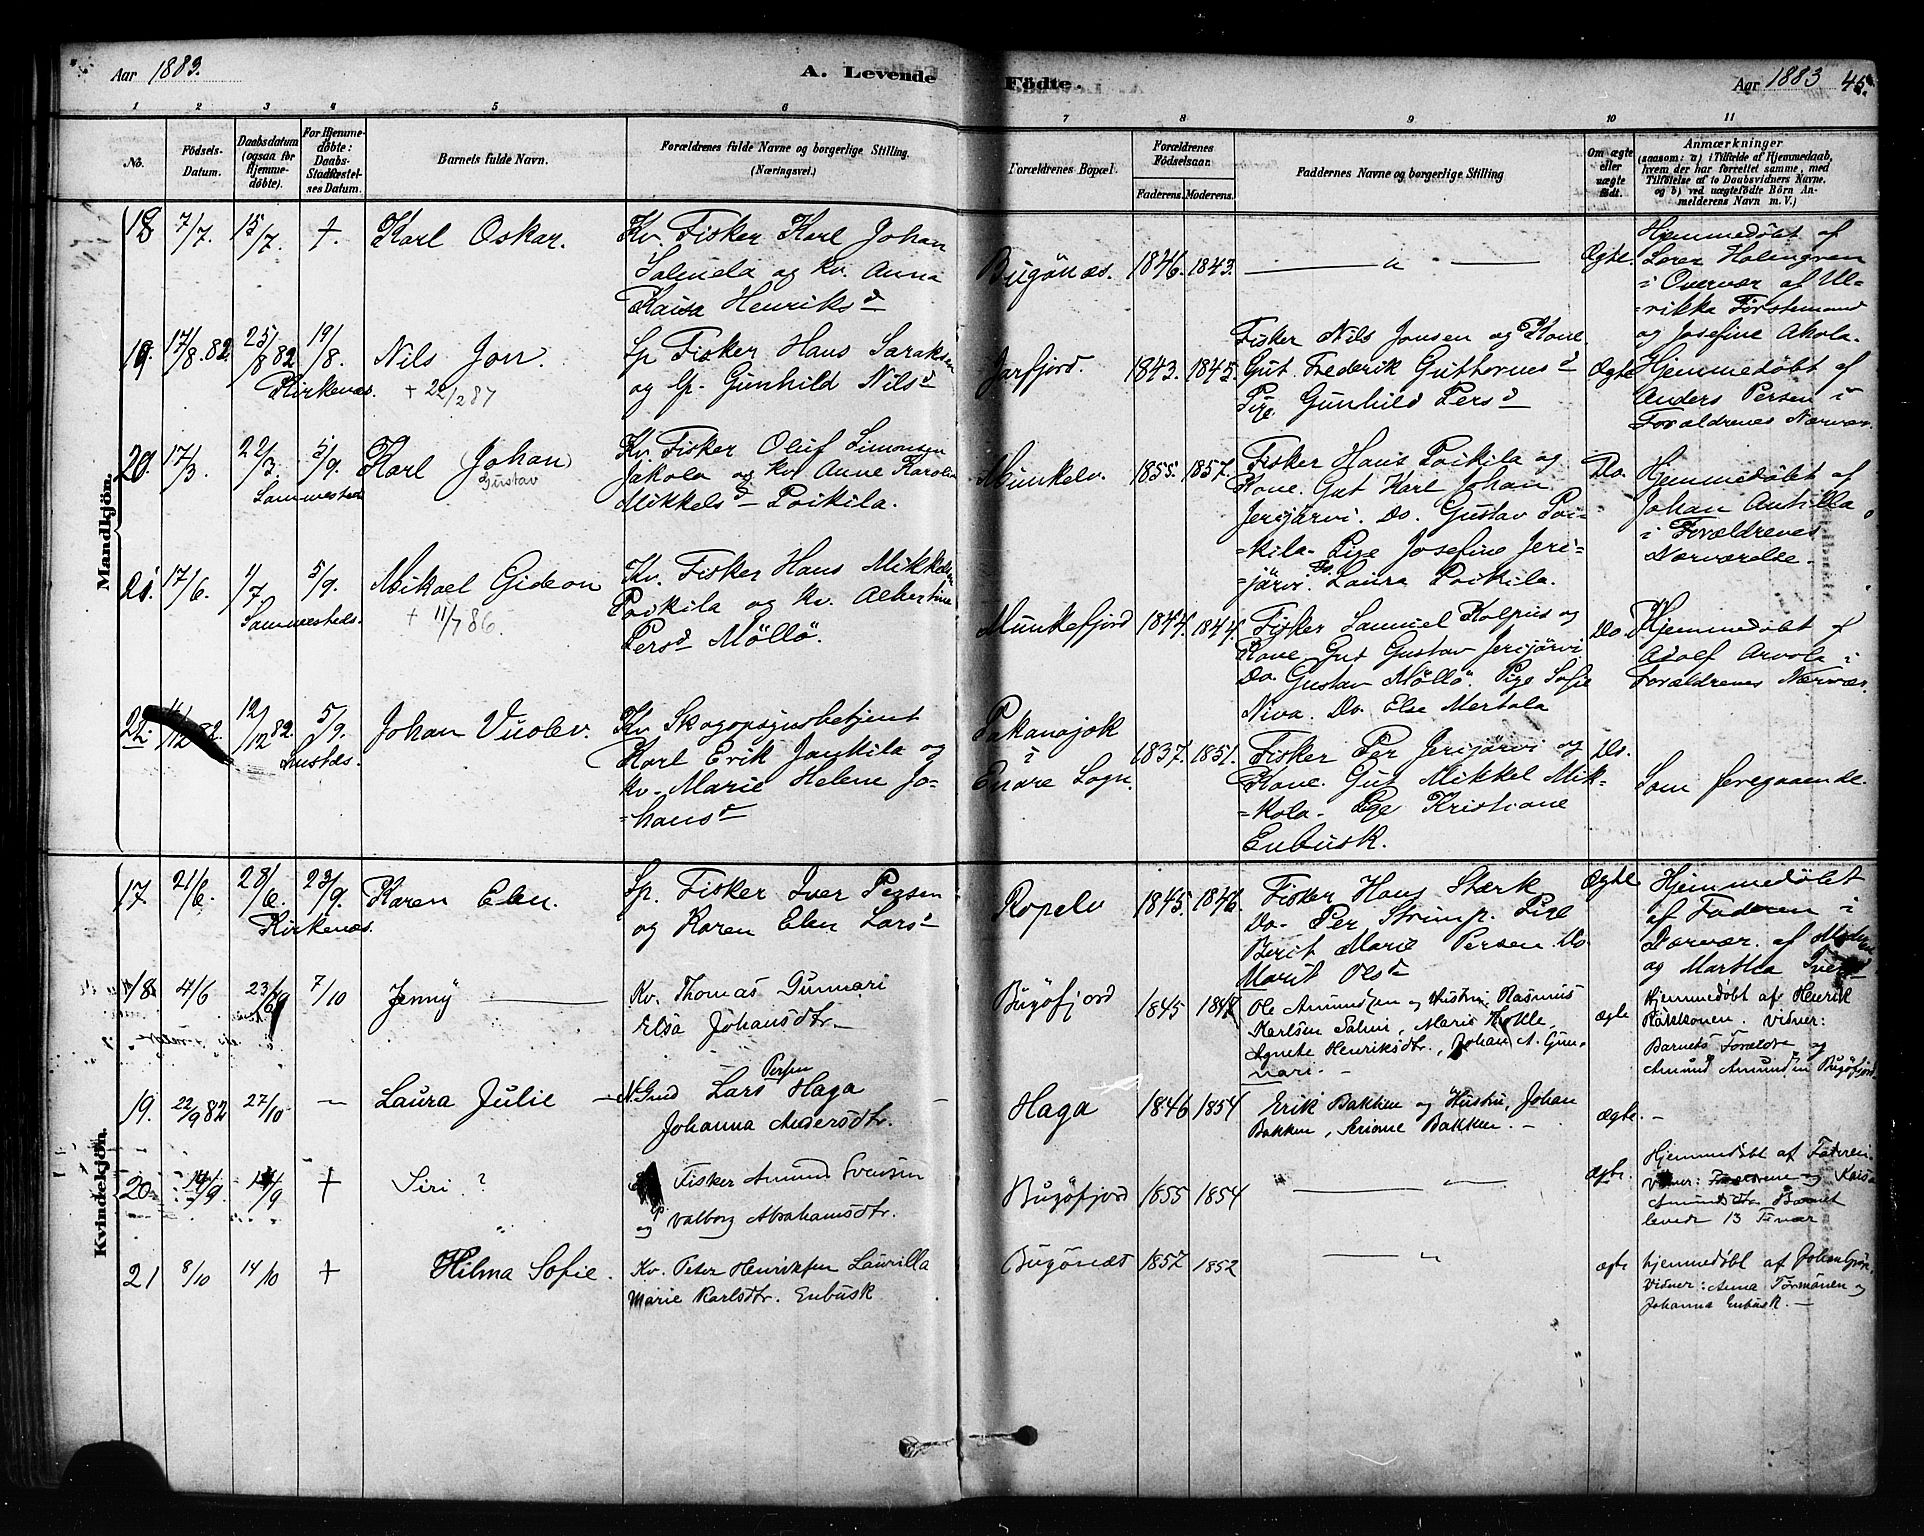 Aar 1883.
A. Levende
Födte.
Aar 1883
45.
1 2 3 4 5 6 7 8 9 10 11
No.
Födsels-Datum.
Daabsdatum (ogsaa for Hjemme-döbte).
For Hjemme-döbte: Daabs-Stadfæstel-ses Datum.
Barnets fulde Navn.
Forældrenes fulde Navne og borgerlige Stilling. (Næringsvei.)
Forældrenes Bopæl.
Forældrenes Födselsaar.
Faderens. Moderens.
Faddernes Navne og borgerlige Stilling
Om ægte eller uægte födt.
Anmærkninger
(saasom: a) i Tilfælde af Hjemmedaab, hvem der har forrettet samme, med Tilföielse af to Daabsvidners Navne, og b) ved uægtefödte Börn An-melderens Navn m. V.)
Mandkjön.
18 7/7. 15/7. +. Karl Oskar.
Kv. Fisker Karl Johan
og Kv. Anna
Kaisa Henriksd
Bugönæs. 1846. 1843. — " — Ægte.
Hjemmedöbt af
Holmgren
i Overvær af Ul-
=rikka Förstemand
og Josefine Akola.
19. 17/8.82. 25/8 82 19/8. Nils Jon.
Kirkenæs. + 22/2 87
Lp Fisker Hans Saraksen
og Lp. Gunhild Nilsd
Jarfjord. 1843. 1845.
Fisker Nils Jonsen og Kone.
Gut. Frederik Guttormesd
Pige Gunhild Persd
Ægte
Hjemmedöbt af
Anders Persen i
Forældrenes Nærvær.
20. 17/3. 22/3 5/9. Karl Johan
Gustav
Sammesteds
Kv. Fisker Oluf Simonsen
Jakola og Kv. Anne Karoline
Mikkelsd Poikila.
Munkelv. 1855. 1857.
Fisker Hans Poikila og
Kone. Gut Karl Johan
Jerijärvi. Do. Gustav Poi-
=kila. Pige Josefine Jeri-
=järvi. Do Laura Poikila.
Do.
Hjemmedöbt af
Johan Antilla
i Forældrenes
Nærværelse.
21. 17/6. 1/7 5/9. Mikael Gideon
Sammesteds. + 11/7 86.
Kv. Fisker Hans Mikkelsen
Poikila og Kv. Albertine
Persd Möllö.
Munkefjord 1844. 1844.
Fisker Samuel Kolpus og
Kone Gut Gustav Jerijärvi
Do Gustav Möllö. Pige Sofie
Niva. Do Else Mertala
Do.
Hjemmedöbt af
Adolf Arvola i
Forældrenes Nærvær.
22. 11/12 82. 12/12 82. 5/9. Johan Vuolev.
Kv. Skogopsynsbetjent
Karl Erik Jankila og
Kv. Marie Helene Jo-
=hansd
Pakanajok
i
Enare Sogn. 1837. 1851.
Fisker Per Jerijärvi og
Kone. Gut Mikkel Mik-
=kola. Pige Kristiane
Enbusk.
Do.
Som foregaaende.
Kvindekjön.
17. 21/6. 28/6. 23/9. Karen Elen.
Kirkenæs.
Lp. Fisker Iver Persen
og Karen Elen Larsd
Ropelv 1845. 1846.
Fisker Hans Stærk
Do. Per Strimp. Pige
Berit Marie Persen. Do
Marit Olsd
Ægte
Hjemmedöbt
af Faderen i
Nærvær. af Moderen
og Martha
18. 4/6 23/ 7/10 Jenny —
Kv. Thomas Gunnari
Elsa Johansdtr.
Bugöfjord 1845 1847
Ole Amundsen og Hustru, Rasmus
Karlsen Salmi, Marie
Agnete Henriksdtr., Johan A. Gun-
nari. —
ægte
Hjemmedöbt af Henrik
Vidner:
Barnets Forældre og
Amund Amundsen Bugöfjord
19. 22/9 82 27/10. — Laura Julie —
Persen
N. Gmd Lars Haga
Johanna Andersdtr.
Haga 1846 1854
Erik Bakken og Hustru, Johan
Bakken, Seriane Bakken. —
ægte. —
20. 14/9. 14/9 + Siri. ?
Fisker Amund Svensen
og Valborg Abrahamsdtr.
Bugöfjord 1855 1854 " — " — ægte
Hjemmedöbt af Faderen.
Vidner: og Kaisa
Amundsdtr. Barnet
levede 13 Timer
21 8/10 14/10 + Hilma Sofie.
Kv. Peter Henriksen Laurilla
Marie Karlsdtr. Enbusk
Bugönæs 1857 1852 — " ægte
hjemmedöbt af Johan Grön.
Vidner: Anna Törmänen og
Johanna Enbusk. —